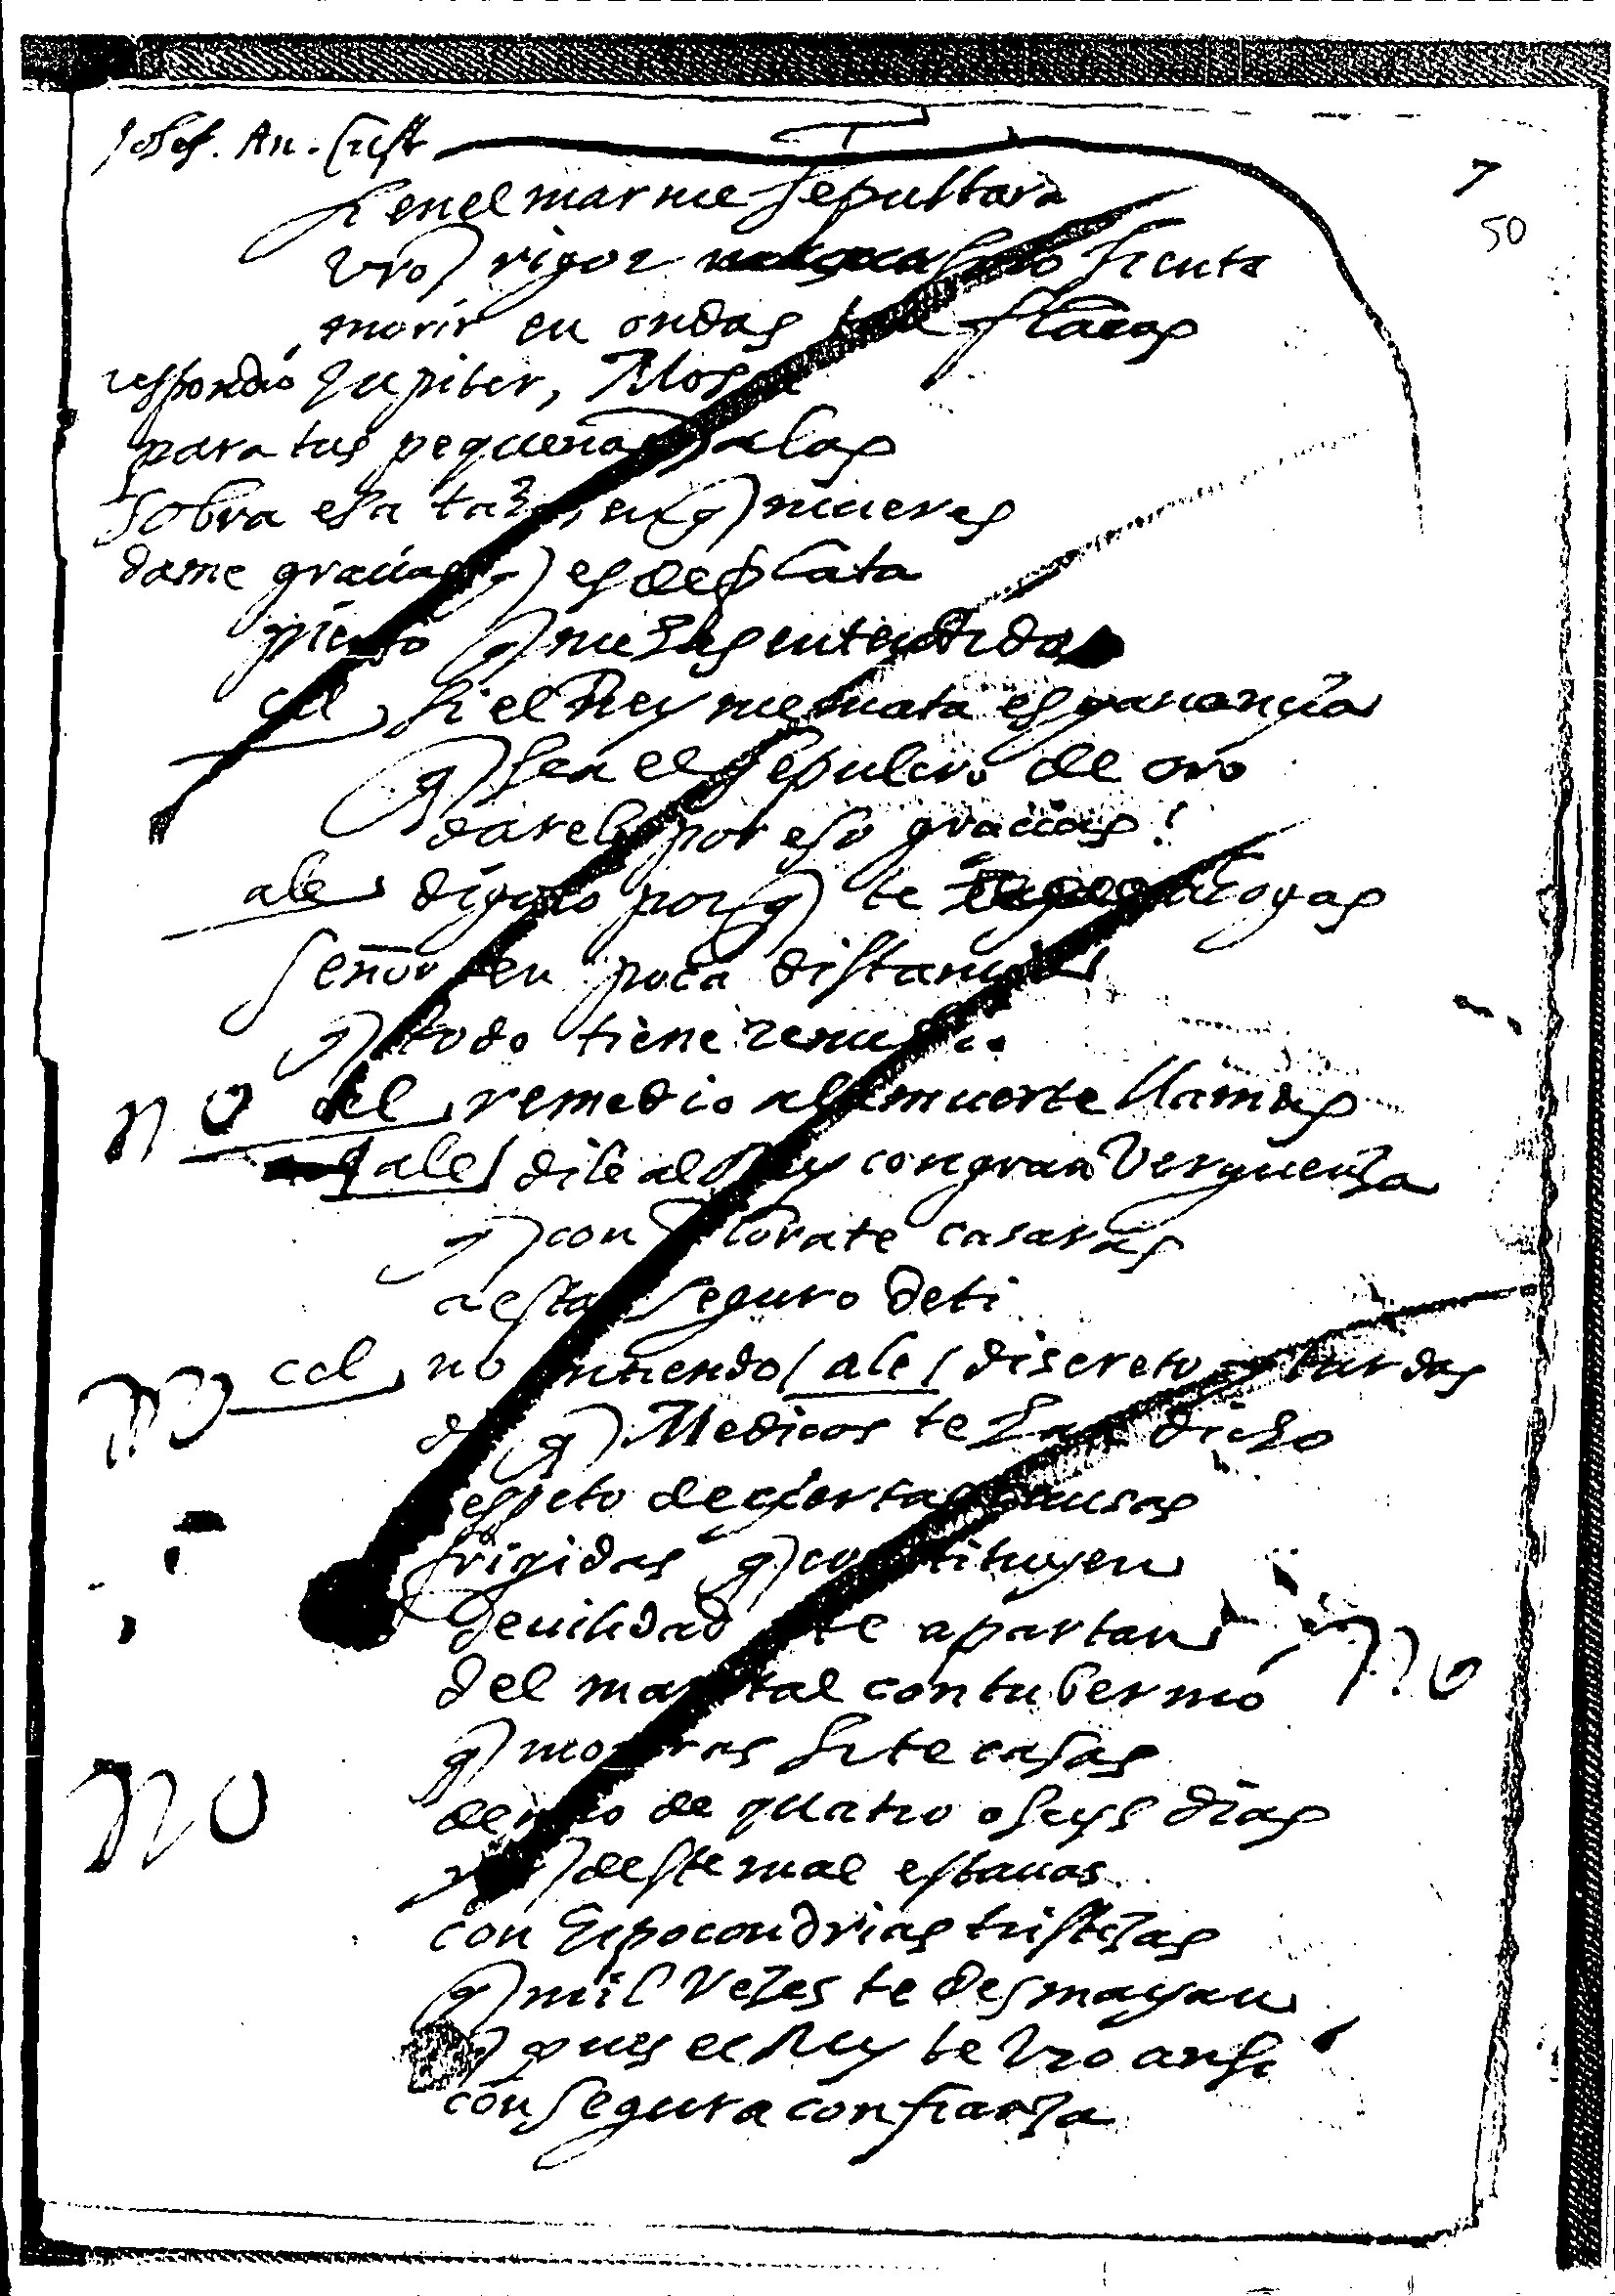 Josef. An.
7
50
si en el mar me sepultara
vro rigor siento
morir en ondas
respondio Jupiter, Mosca
para tus pequeñas alas
sobra esa taza, en q mueres
dame gracias q es de plata
pienso q me has entendido
cel si el Rey me mata es ganancia
q sea el sepulcro de oro
darele por eso gracias!
ale digolo porq te
Señor en poca distancia
q todo tiene remedio
no cel remedio a la muerte llamas
ale dile al Rey con gran verguenza
q con Florate casaras
a estar seguro de ti
no cel no entiendo ale discreto
q Medicos te han dicho
respeto de ciertas causas
frigidas q constituyen
deuilidad te apartan
del marital contubernio no
q moriras si te casas
no dentro de quatro o seys dias
deste mal estauas
con hipocondrias tristezas
q mil vezes te desmayan
pues el Rey te vio ansi
con segura confianza